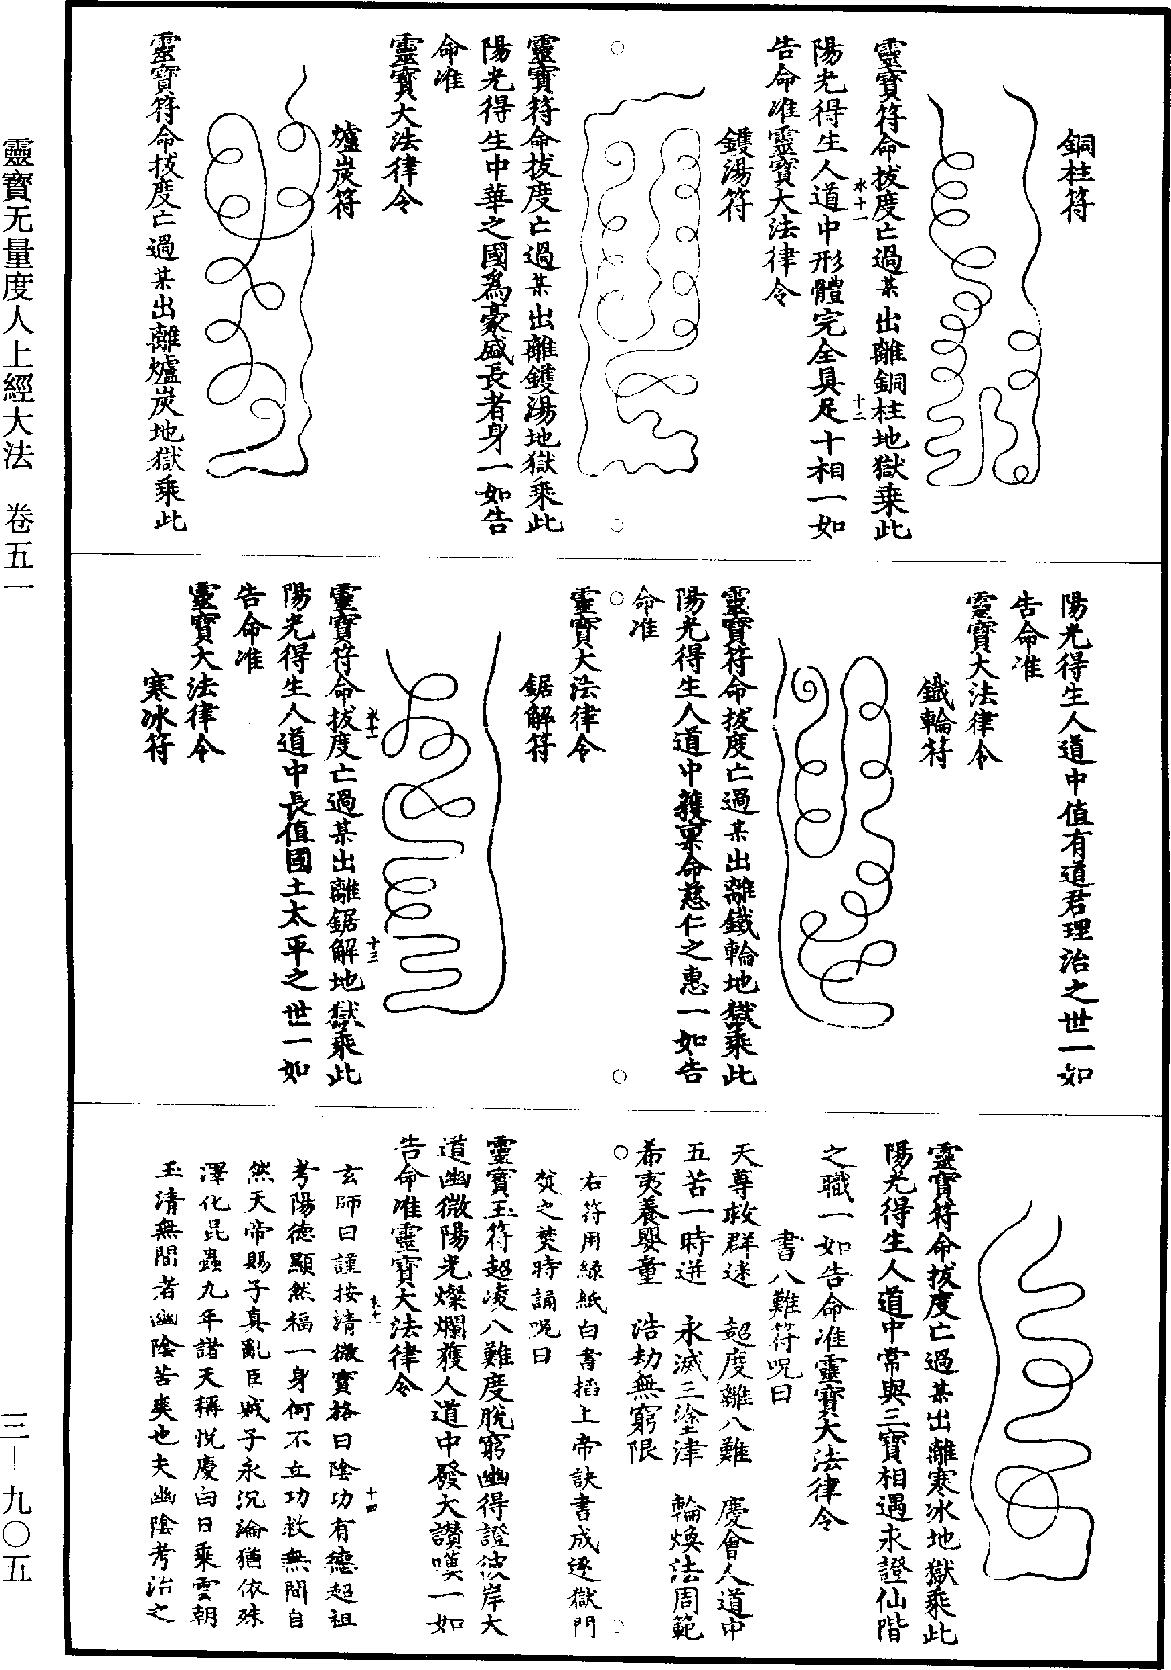 銅柱符
靈寶符命拔度亡過某出離銅柱地獄乘此
陽光得生人道中形體完全具足十相一如
告命准靈寶大法律令
水十一
十二
鑊湯符
靈寶符命拔度亡過某出離鑊湯地獄乘此
陽光得生中華之國為豪盛長者身一如告
命准
靈寶大法律令
爐炭符
靈寶符命拔度亡過某出離爐炭地獄乘此
陽光得生人道中值有道君理治之世一如
告命准
靈寶大法律令
鐵輪符
靈寶符命拔度亡過某出離鐵輪地獄乘此
陽光得生人道中獲稟命慈仁之惠一如告
命准
靈寶大法律令
鋸解符
靈寶符命拔度亡過某出離鋸解地獄乘此
陽光得生人道中長值國土太平之世一如
告命准
靈寶大法律令
水十一
十三
寒冰符
靈寶符命拔度亡過某出離寒冰地獄乘此
陽光得生人道中常與三寶相遇永證仙階
之職一如告命准靈寶大法律令
書八難符呪曰
天尊救群迷 超度離八難 慶會人道中
五苦一時迸 永滅三塗津 輪煥法周範
希夷養嬰童 浩劫無窮限
右符用綠紙白書搯上帝訣書成逐獄門
焚之焚時誦呪曰
靈寶玉符超凌八難度脫窮幽得證彼岸大
道幽微陽光燦爛獲人道中發大讚嘆一如
告命准靈寶大法律令
水十一
十四
玄師曰謹按清微寶格曰陰功有德超祖
考陽德顯然福一身何不立功救無間自
然天帝賜子真亂臣賊子永沉淪猶依殊
澤化昆蟲九年諸天稱悅慶白日乘雲朝
玉清無間者幽陰苦爽也夫幽陰考治之
靈寶无量度人上經大法 卷五一
三—九〇五